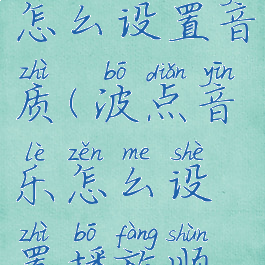 怎么设置音
zhì bō diǎn yīn
质(波点音
lè zěn me shè
乐怎么设
zhì bō fàng shùn
置播放顺